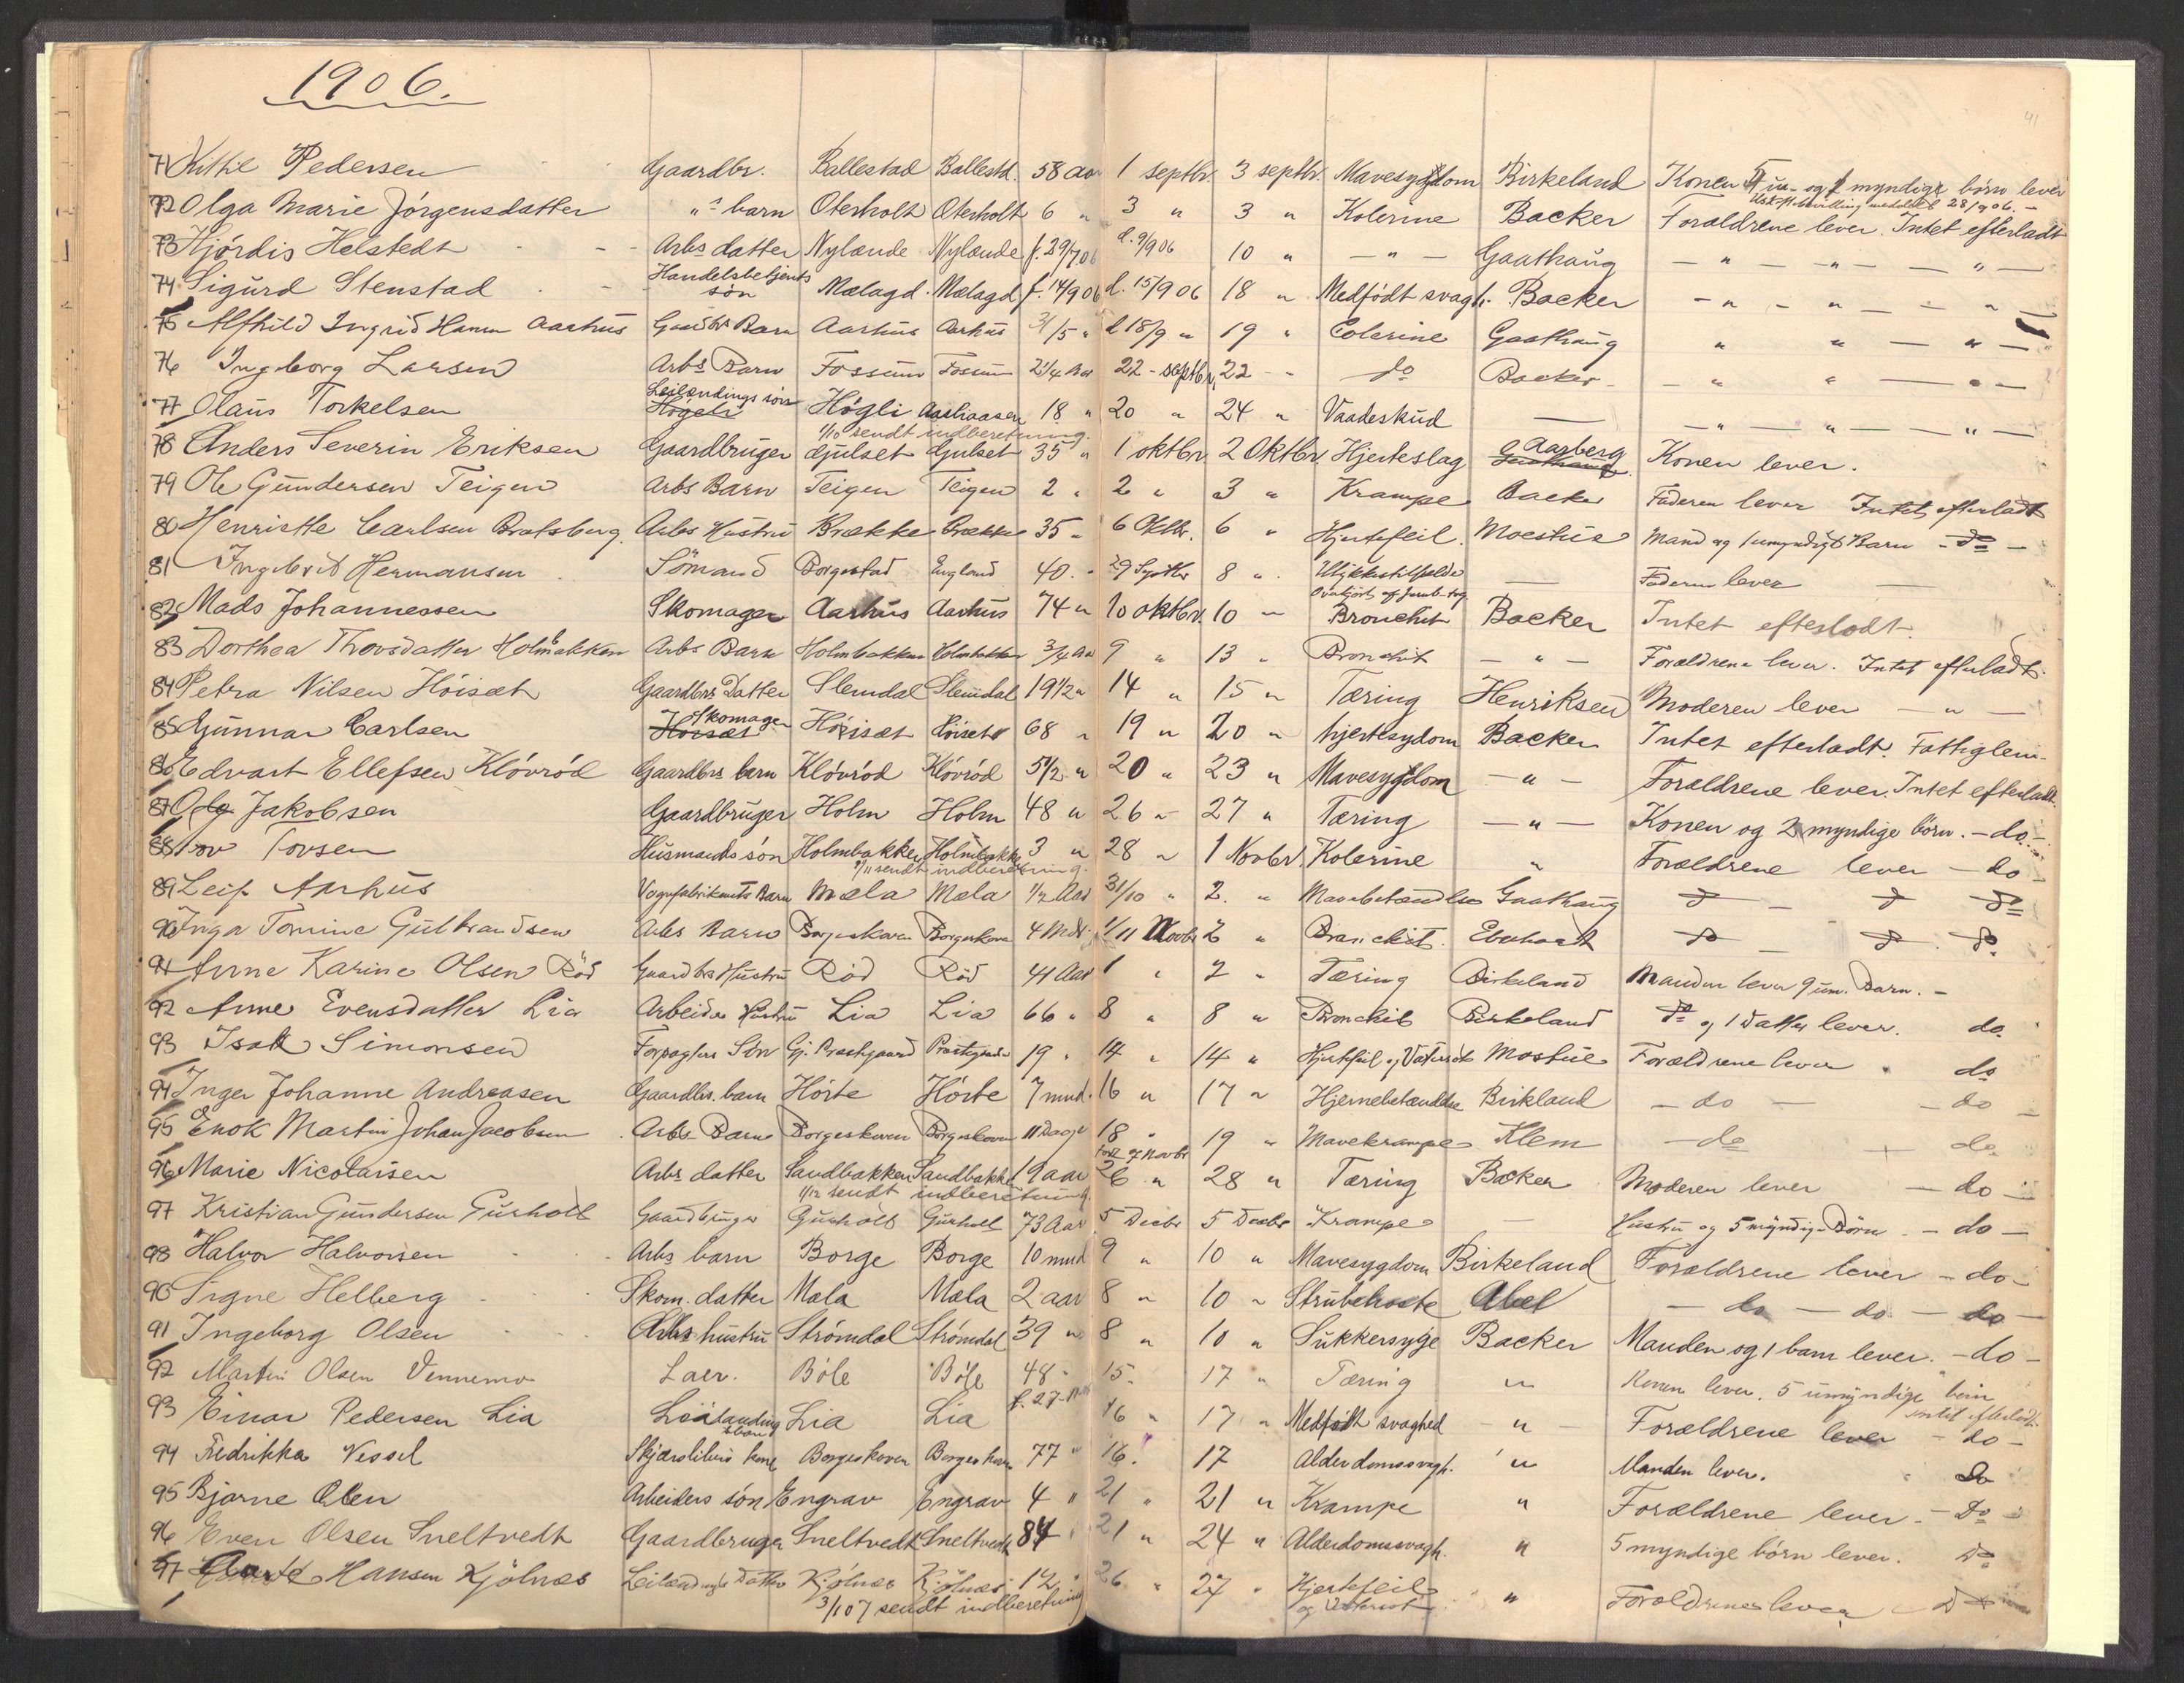 1906.
41
71 Kittil Pedersen Gaardbr. Ballestad Ballestd. 58 aar 1 septbr. 3 septbr. Mavesygdom Birkeland Konen og myndige børn lever
28/9 06. -
72 Olga Marie Jørgensdatter "- barn Oterholt Oterholt 6 " 3 " 3 " Kolerine Backer Forældrene lever. Intet efterladt
73 Hjørdis Helstedt - - - Arbs datter Nylænde Nylænde f. 29/7 06 d. 9/9 06 10 " - " - Gaathaug - " - " - " -
74 Sigurd Stenstad - - Handelsbetjents søn Mælagd. Mælagd f. 14/9 06 d. 15/9 06 18 " Medfødt svagh. Backer - " - " - " -
75 Alfhild Ingrid Hanna Aarhus Gaardbr Barn Aarhus Aarhus 31/5 " d 18/9 " 19 " Colerine Gaathaug " " - " -
76 Ingeborg Larsen Arbs Barn Fossum Fossum 2 1/4 Aar 22 - septbr. 22 - " do Backer - - " " - " -
77 Olaus Torkelsen Leilændings søn Høgeli Høgli Aashaasen 18 " 20 " 24 " Vaadeskud - - " - " - " -
1/10 sendt indberetning.
78 Anders Severin Eriksen Gaardbruger Gjulset Gjulset 35 " 1 oktbr. 2 Oktbr. Hjerteslag Aarberg Konen lever.
79 Ole Gundersen Teigen Arbs Barn Teigen Teigen 2 " 2 " 3 " Krampe Backer Faderen lever Intet efterladt
80 Henriette Carlsen Bratsberg. Arbs Hustru Brække Brække 35 " 6 Oktbr. 6 " Hjertefeil. Moestue Mand og 1 umyndigt Barn - do -
81 Ingebrit Hermansen. Sømand Borgestad England 40. " 29 Septbr 8 " Ulykkestilfælde - Faderen lever -
Overkjørt af Jernb. tog
82 Mads Johannessen Skomager Aarhus Aarhus 74 " 10 oktbr. 10 - Bronchit Backer Intet efterladt.
83 Dorthea Thovsdatter Holmbakken Arbs Barn Holmbakken Holmbakken 3/4 Aar 9 " 13 " Bronchit - " - Forældrene lever. Intet efterladt.
84 Petra Nilsen Höisæt Gaardbrs Datter Slemdal Slemdal 19 1/2 " 14 " 15 " Tæring Henriksen Moderen lever - " -
85 Gunnar Carlsen Skomager Høisæt Höisæt Höiset 68 " 19 " 20 " hjertesydom Backer Intet efterladt. Fattiglem.
86 Edvart Ellefsen Kløvrød Gaardbrs barn Kløvrød Kløvrød 5 1/2 " 20 " 23 " Mavesygdom - " - Forældrene lever. Intet efterladt.
87 Ole Jakobsen Gaardbruger Holm Holm 48 " 26 " 27 " Tæring - " - Konen og 2 myndige børn. - do -
88 Tov Tovsen Husmands søn Holmbakken Holmbakke 3 " 28 " 1 Novbr Kolerine " Forældrene lever - do -
1/11 sendt indberetning.
89 Leif Aarhus Vognfabrikants Barn Mæla Mæla 1/2 Aar 31/10 " 2. " Mavebetændelse Gaathaug do - do do
90 Inga Tomine Gulbrandsen Arbs Barn Borgeskoven Borgeskoven 4 Mdr. 1/11 Novbr 2 " Bronchit. do - do. do.
91 Anne Karine Olsen Röd Gaardbrs Hustru Röd Röd 41 Aar 1 " 2 " Tæring Birkeland Manden lever 9 um. Barn. -
92 Anne Evensdatter Lia Arbeider Hustru Lia Lia 66 " 8 " 8 " Bronchit Birkeland do og 1 Datter lever. do
93 Isak Simonsen Forpagters Søn Gj. Prestgaard Prestegaarden 19 " 14 " 14 " Hjertefeil og Vatersot Mostue Forældrene lever " do
94 Inger Johanne Andreasen Gaardbrs. barn Hörte Hörte 7 mnd. 16 " 17 " Hjernebetændelse Birkland - do - - do -
95 Enok Martin Johan Jacobsen Arbs Barn Borgeskoven Borgeskoven 11 Dage 18 " 19 " Mavekrampe Klem - do - do
født 7 Novbr
96 Marie Nicolaisen Arbs datter Sandbakken Sandbakke 19 aar 26 " 28 " Tæring Backer Moderen lever - do -
1/12 sendt indberetning.
97 Kristian Gundersen Gurholt Gaardbruger Gurholt Gurholt 73 Aar 5 Decbr 5 Decbr Krampe - Hustru og 5 myndige Börn - do -
98 Halvor Halvorsen Arbs barn Borge Borge 10 mnd 9 " 10 " Mavesygdom Birkeland Forældrene lever - do -
90 Signe Helberg Skom. datter Mæla Mæla 2 aar 8 " 10 " Strubehoste Abel - do - do - do -
91 Ingeborg Olsen Arbs hustru Strömdal Strömdal 39 " 8 " 10 " Sukkersyge Backer Manden og 1 barn lever. - do -
92 Martin Olsen Vennemo Laer. Böle Böle 48 " 15. 17 " Tæring " Konen lever. 5 umyndige børn
intet efterladt.
93 Einar Pedersen Lia Leilændings barn Lia Lia f. 27 16 " 17 " Medfødt svaghed - " - Forældrene lever - do -
94 Fredrikka Vessel Skjærslibers kone Borgeskoven Borgeskoven 77 " 16. 17 Alderdomssvagh. " Manden lever. do
95 Bjarne Olsen Arbeiders søn Engrav Engrav 4 " 21 " 21 " Krampe " Forældrene lever. - Do -
96 Even Olsen Sneltvedt Gaardbruger Sneltvedt Sneltvedt 84 " 21 " 24 " Alderdomssvagh. " 5 myndige børn lever. Do
97 Hansen Kjölnæs Leilændings Datter Kjölnæs Kjölnæs 12 " 26 " 27 " Hjertefeil og Vatersot " Forældrene lever Do
3/1 07 sendt indberetning